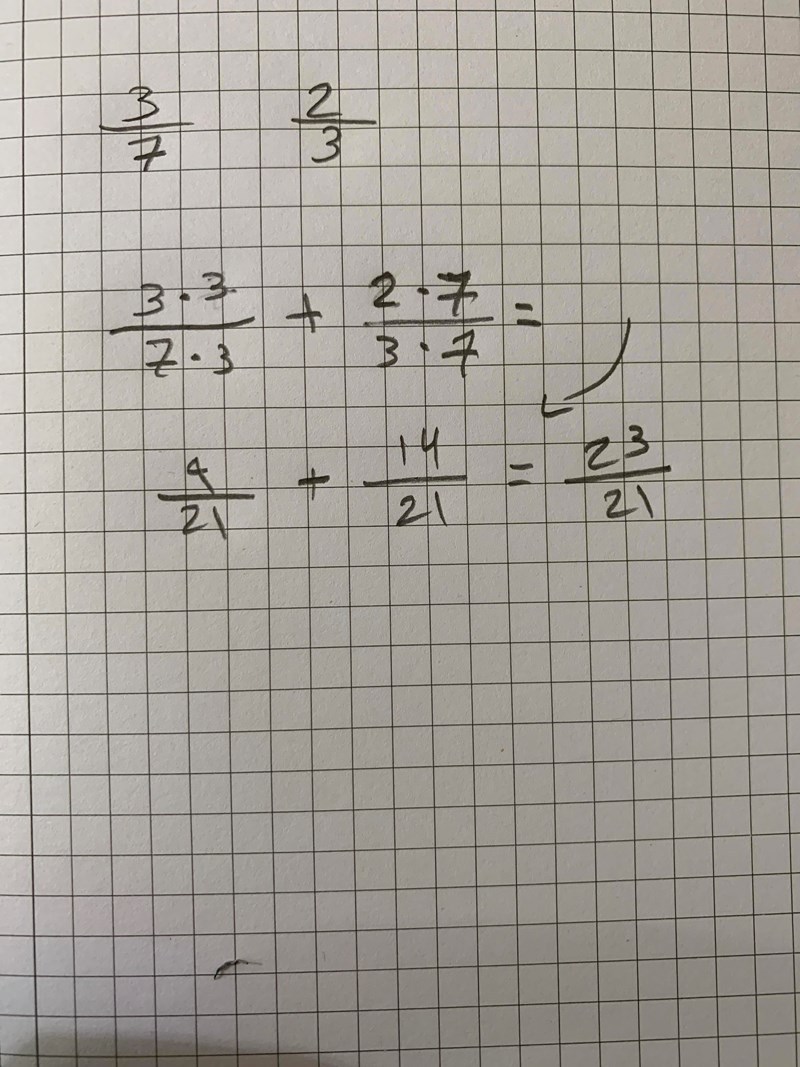 3/7 2/3
3·3/7·3 + 2·7/3·7 =
9/21 + 14/21 = 23/21